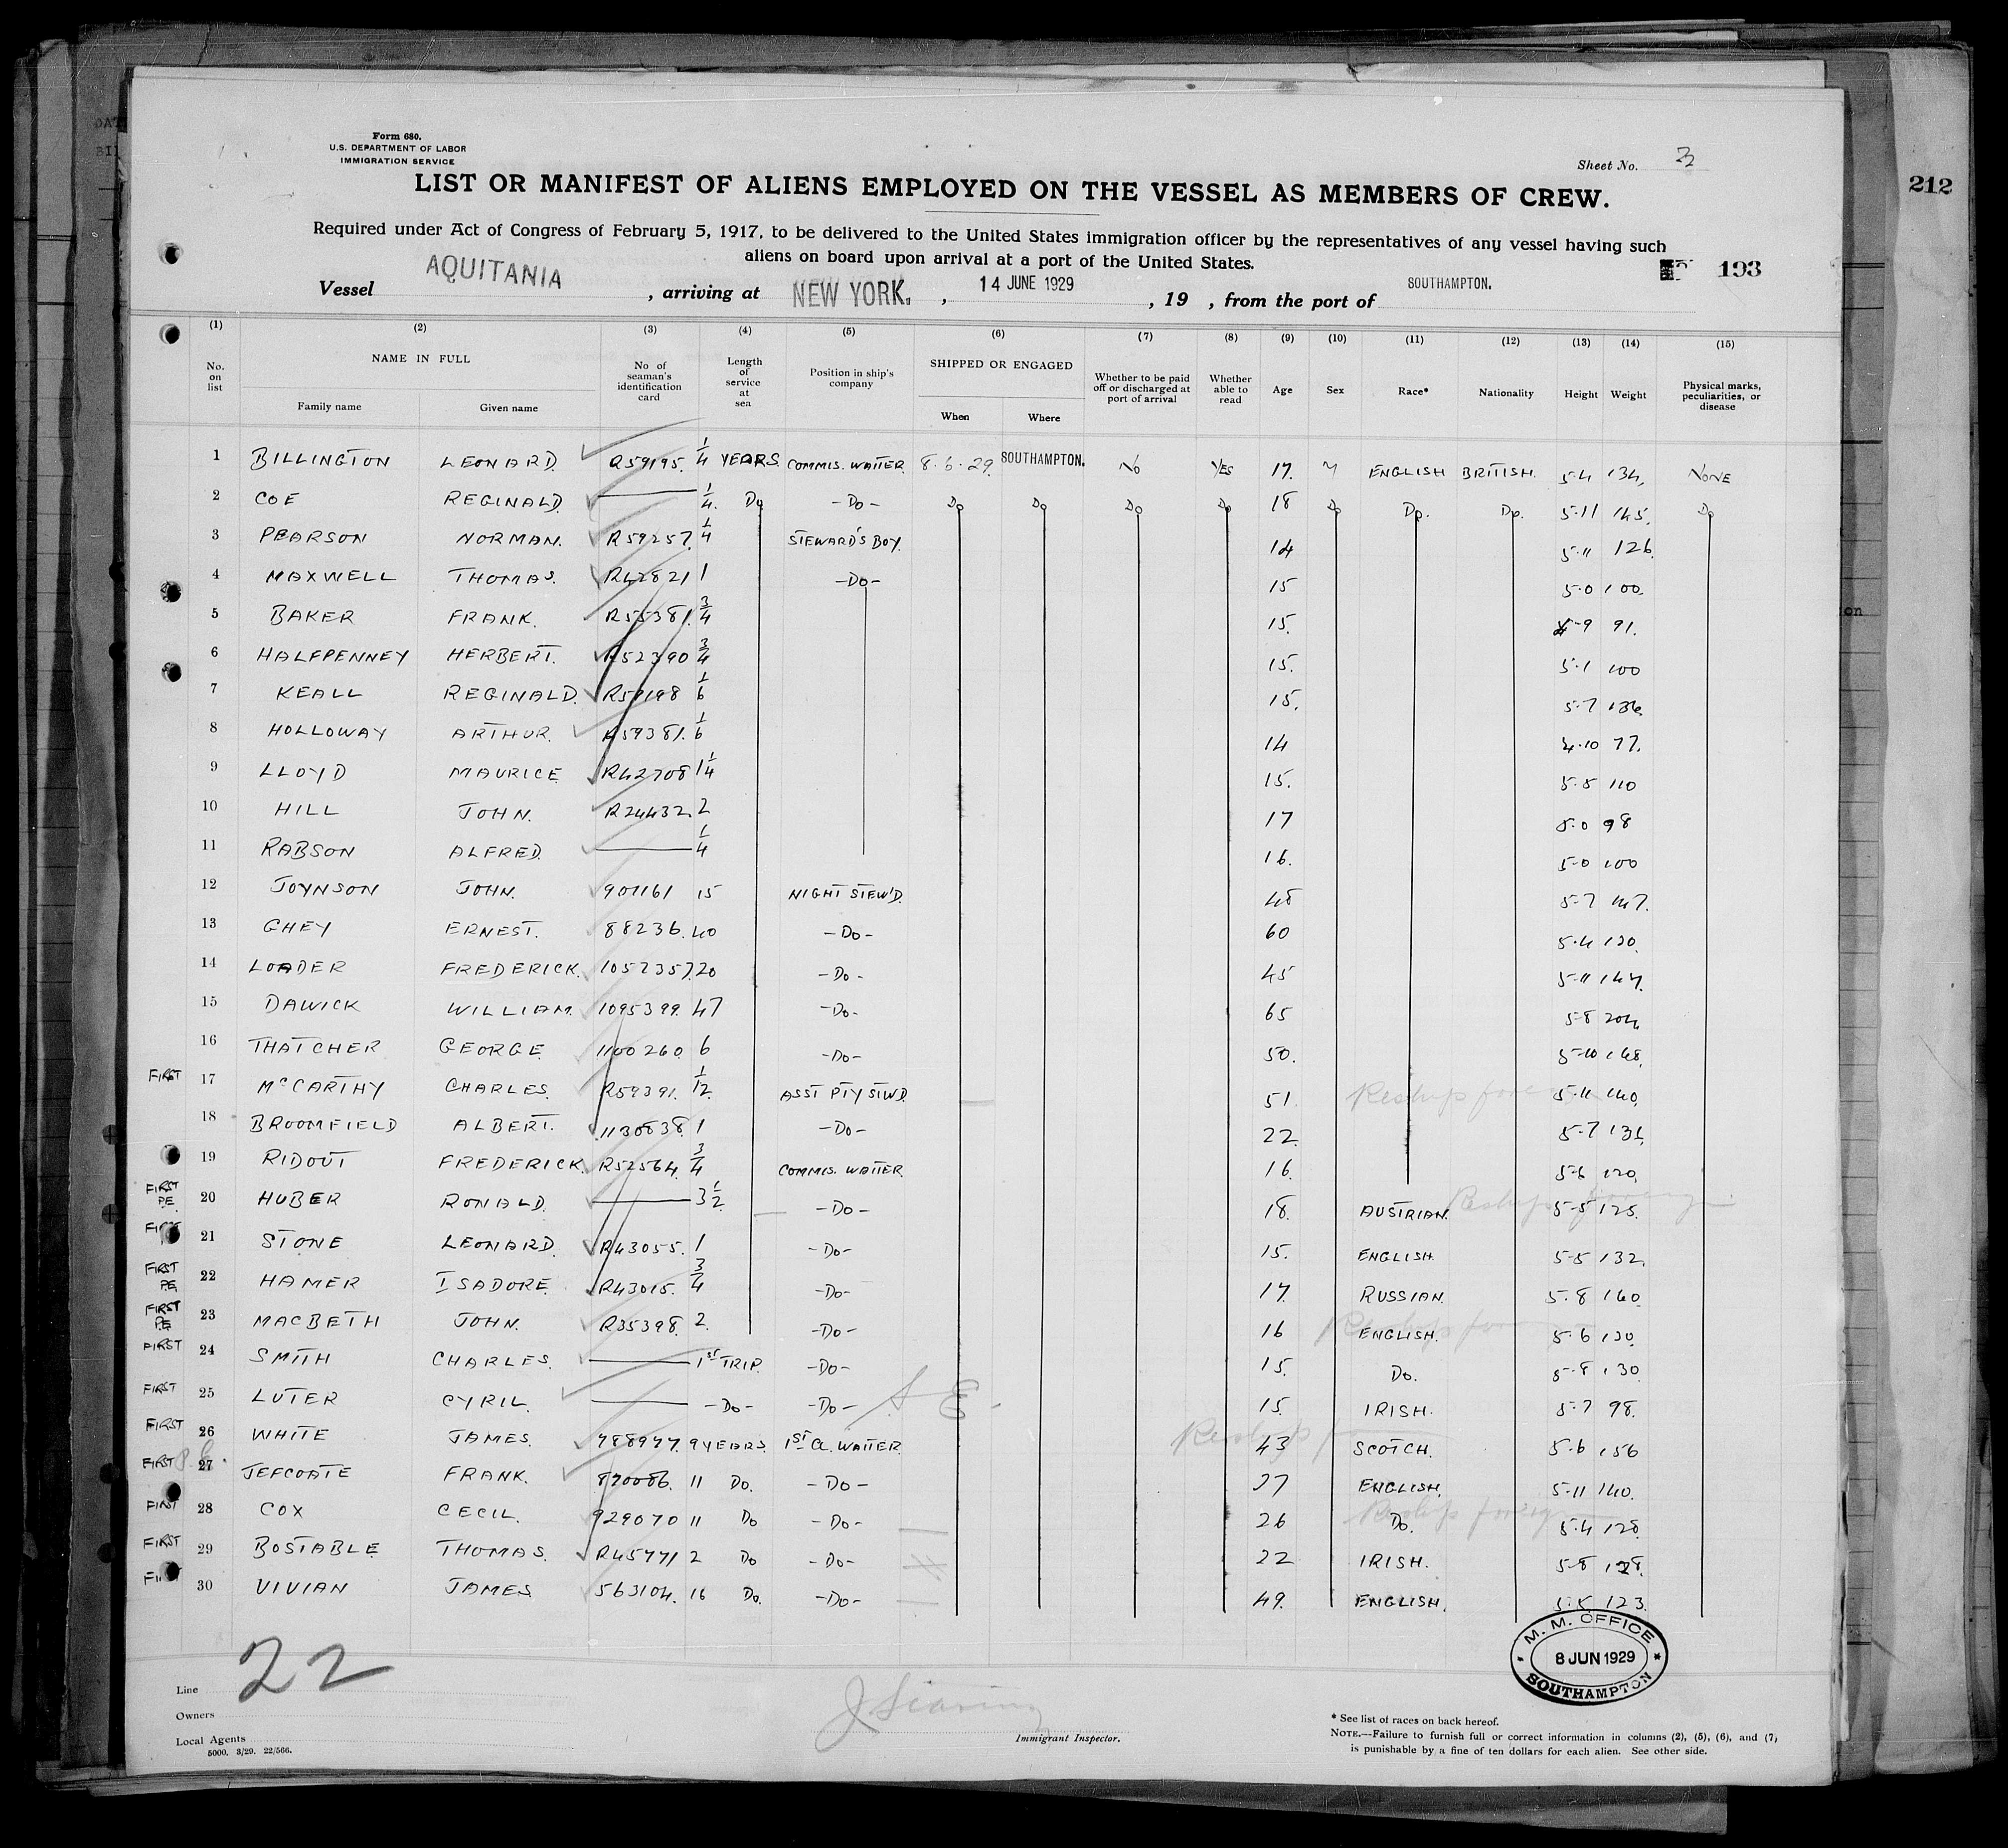 Form 680.
U.S. DEPARTMENT OF LABOR
IMMIGRATION SERVICE
Sheet No. 3
212
LIST OR MANIFEST OF ALIENS EMPLOYED ON THE VESSEL AS MEMBERS OF CREW.
Required under Act of Congress of February 5, 1917, to be delivered to the United States immigration officer by the representatives of any vessel having such
aliens on board upon arrival at a port of the United States.
193
Vessel AQUITANIA , arriving at NEW YORK. , 14 JUNE 1929 , 19 , from the port of SOUTHAMPTON.
(1) (2) (3) (4) (5) (6) (7) (8) (9) (10) (11) (12) (13) (14) (15)
No. on list NAME IN FULL Family name Given name No of seaman's identification card Length of service at sea Position in ship's company SHIPPED OR ENGAGED When Where Whether to be paid off or discharged at port of arrival Whether able to read Age Sex Race* Nationality Height Weight Physical marks, peculiarities, or disease
1 BILLINGTON LEONARD. R59195. 1/4 YEARS. COMMIS. WAITER 8.6.29. SOUTHAMPTON. NO YES 17. M ENGLISH BRITISH. 5.4 134. NONE
2 COE REGINALD. 1/4. Do -Do- Do Do Do Do 18 Do Do. Do. 5.11 145. Do
3 PEARSON NORMAN. R59257. 1/4 STEWARD'S BOY. 14 5.11 126.
4 MAXWELL THOMAS. R42821 1 -Do- 15 5.0 100.
5 BAKER FRANK. R55381. 3/4 15. 4-9 91.
6 HALFPENNEY HERBERT. R52390 3/4 15. 5.1 100
7 KEALL REGINALD. R59198 1/6 15. 5.7 136.
8 HOLLOWAY ARTHUR. R59381. 1/6 14 4.10 77.
9 LLOYD MAURICE R42708 1 1/4 15. 5.5 110
10 HILL JOHN. R24432. 2 17 5.0 98
11 RABSON ALFRED. 1/4 16. 5.0 100
12 JOYNSON JOHN. 901161 15 NIGHT STEW'D. 48 5-7 147.
13 GHEY ERNEST. 88236. 40 -Do- 60 5.4 120.
14 LOADER FREDERICK. 1057357. 20 -Do- 45 5-11 147.
15 DAWICK WILLIAM. 1095399. 47 -Do- 65 5-8 204
16 THATCHER GEORGE 1100260. 6 -Do- 50. 5-10 168.
FIRST 17 McCARTHY CHARLES. R59391. 1/12. ASST PTY STWD. 51 5.11 140.
18 BROOMFIELD ALBERT. 1130838. 1 -Do- 22. 5-7 135.
19 RIDOUT FREDERICK. R52564. 3/4 COMMIS. WAITER. 16. 5-6 120.
FIRST P.E. 20 HUBER RONALD. 3 1/2 -Do- 18. AUSTRIAN. 5-5 125.
FIRST 21 STONE LEONARD. R43055. 1 -Do- 15. ENGLISH. 5-5 132.
FIRST PE 22 HAMER ISADORE. R43015. 3/4 -Do- 17. RUSSIAN. 5.8 160.
FIRST PE 23 MACBETH JOHN. R35398. 2. -Do- 16 ENGLISH. 5.6 130.
FIRST 24 SMITH CHARLES. 1st TRIP. -Do- 15. Do. 5-8 130.
FIRST 25 LUTER CYRIL. -Do- -Do- 15. IRISH. 5-7 98.
FIRST 26 WHITE JAMES. 788977. 9 YEARS. 1ST Cl. WAITER 43 SCOTCH. 5.6 156
FIRST 27 JEFCOATE FRANK. 870086. 11 Do. -Do- 27 ENGLISH. 5-11 140.
FIRST 28 COX CECIL. 929070 11 Do -Do- 26 Do. 5.4 128.
FIRST 29 BOSTABLE THOMAS. R45771 2 Do -Do- 22 IRISH. 5-8 128.
FIRST 30 VIVIAN JAMES 563104. 16 Do. -Do- 49. ENGLISH. 5.5 123.
M. M. OFFICE
8 JUN 1929
SOUTHAMPTON
22
Line
Owners
Local Agents
5000. 3/29. 22/566.
Immigrant Inspector.
* See list of races on back hereof.
NOTE.—Failure to furnish full or correct information in columns (2), (5), (6), and (7)
is punishable by a fine of ten dollars for each alien. See other side.